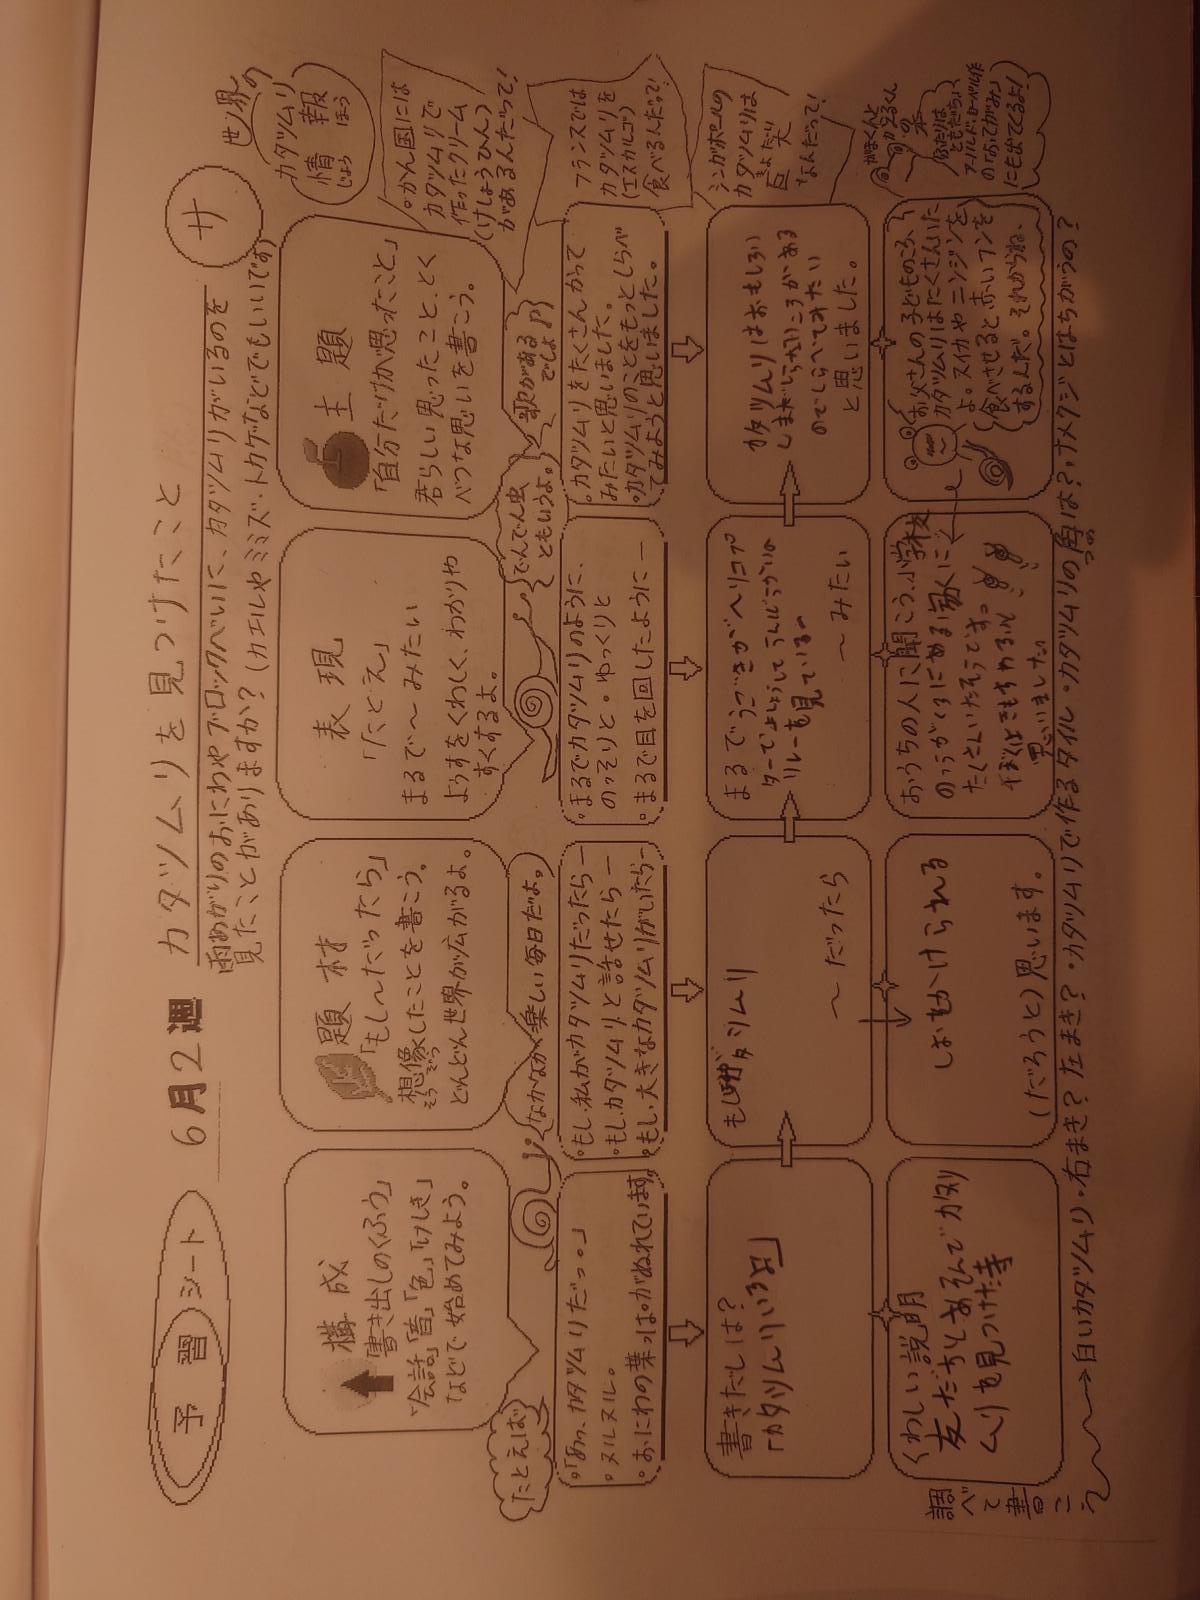 予習シート
6月2週
カタツムリを見つけたこと
サ
雨あがりのおにわやブロックべいに、カタツムリがいるのを
見たことがありますか？(カエルやミミズ・トカゲなどでもいいです)
構成
「書き出しのくふう」
「会話」「音」「色」「けしき」
などで始めてみよう。
題材
「もし〜だったら」
想像したことを書こう。
そうぞう
どんどん世界が広がるよ。
表現
「たとえ」
まるで〜みたい
ようすをくわしく、わかりや
すくするよ。
主題
「自分だけが思ったこと」
君らしい思ったこと、とく
べつな思いを書こう。
世界の
カタツムリ
情報
じょうほう
かん国には
カタツムリで
作ったクリーム
(けしょうひん)
があるんだって！
たとえば
なかなか楽しい毎日だよ。
でんでん虫
ともいうよ。
歌がある
でしょ♪
「あっ、カタツムリだっ。」
ヌルヌル。
おにわの葉っぱがぬれています
もし、私がカタツムリだったら―
もし、カタツムリと話せたら―
もし、大きなカタツムリがいたら―
まるでカタツムリのように、
のっそりと・ゆっくりと
まるで目を回したように―
カタツムリをたくさんかって
みたいと思いました。
カタツムリのことをもっとしらべ
てみようと思いました。
フランスでは
カタツムリを
(エスカルゴ)
食べるんだって！
書きだしは？
「カタツムリいるよ」
〜だったら
まるでうごきがヘリコプ
〜みたい
カタツムリはおもしろい
のでしらべてみたい
と思いました。
シンガポールの
カタツムリは
きょだい
巨大
なんだって！
くわしい説明
友だちとあそんでカタツ
ムリを見つけた
(だろうと)思います。
おうちの人に聞こう。小学校
たくさんいたそうです。
思いました
お父さんの子どものころ、
カタツムリはたくさんいた
よ。スイカやニンジンを
食べさせると、赤いフンを
するんだ。それからね、
がまくんと
かえるくん
の本
「ふたりは
ともだち」
アーノルド・ローベル作
の「おてがみ」
にも出てくるよ！
調べて書こう
白いカタツムリ・右まき？左まき？・カタツムリで作るタイル・カタツムリの角は？・ナメクジとはちがうの？
つの